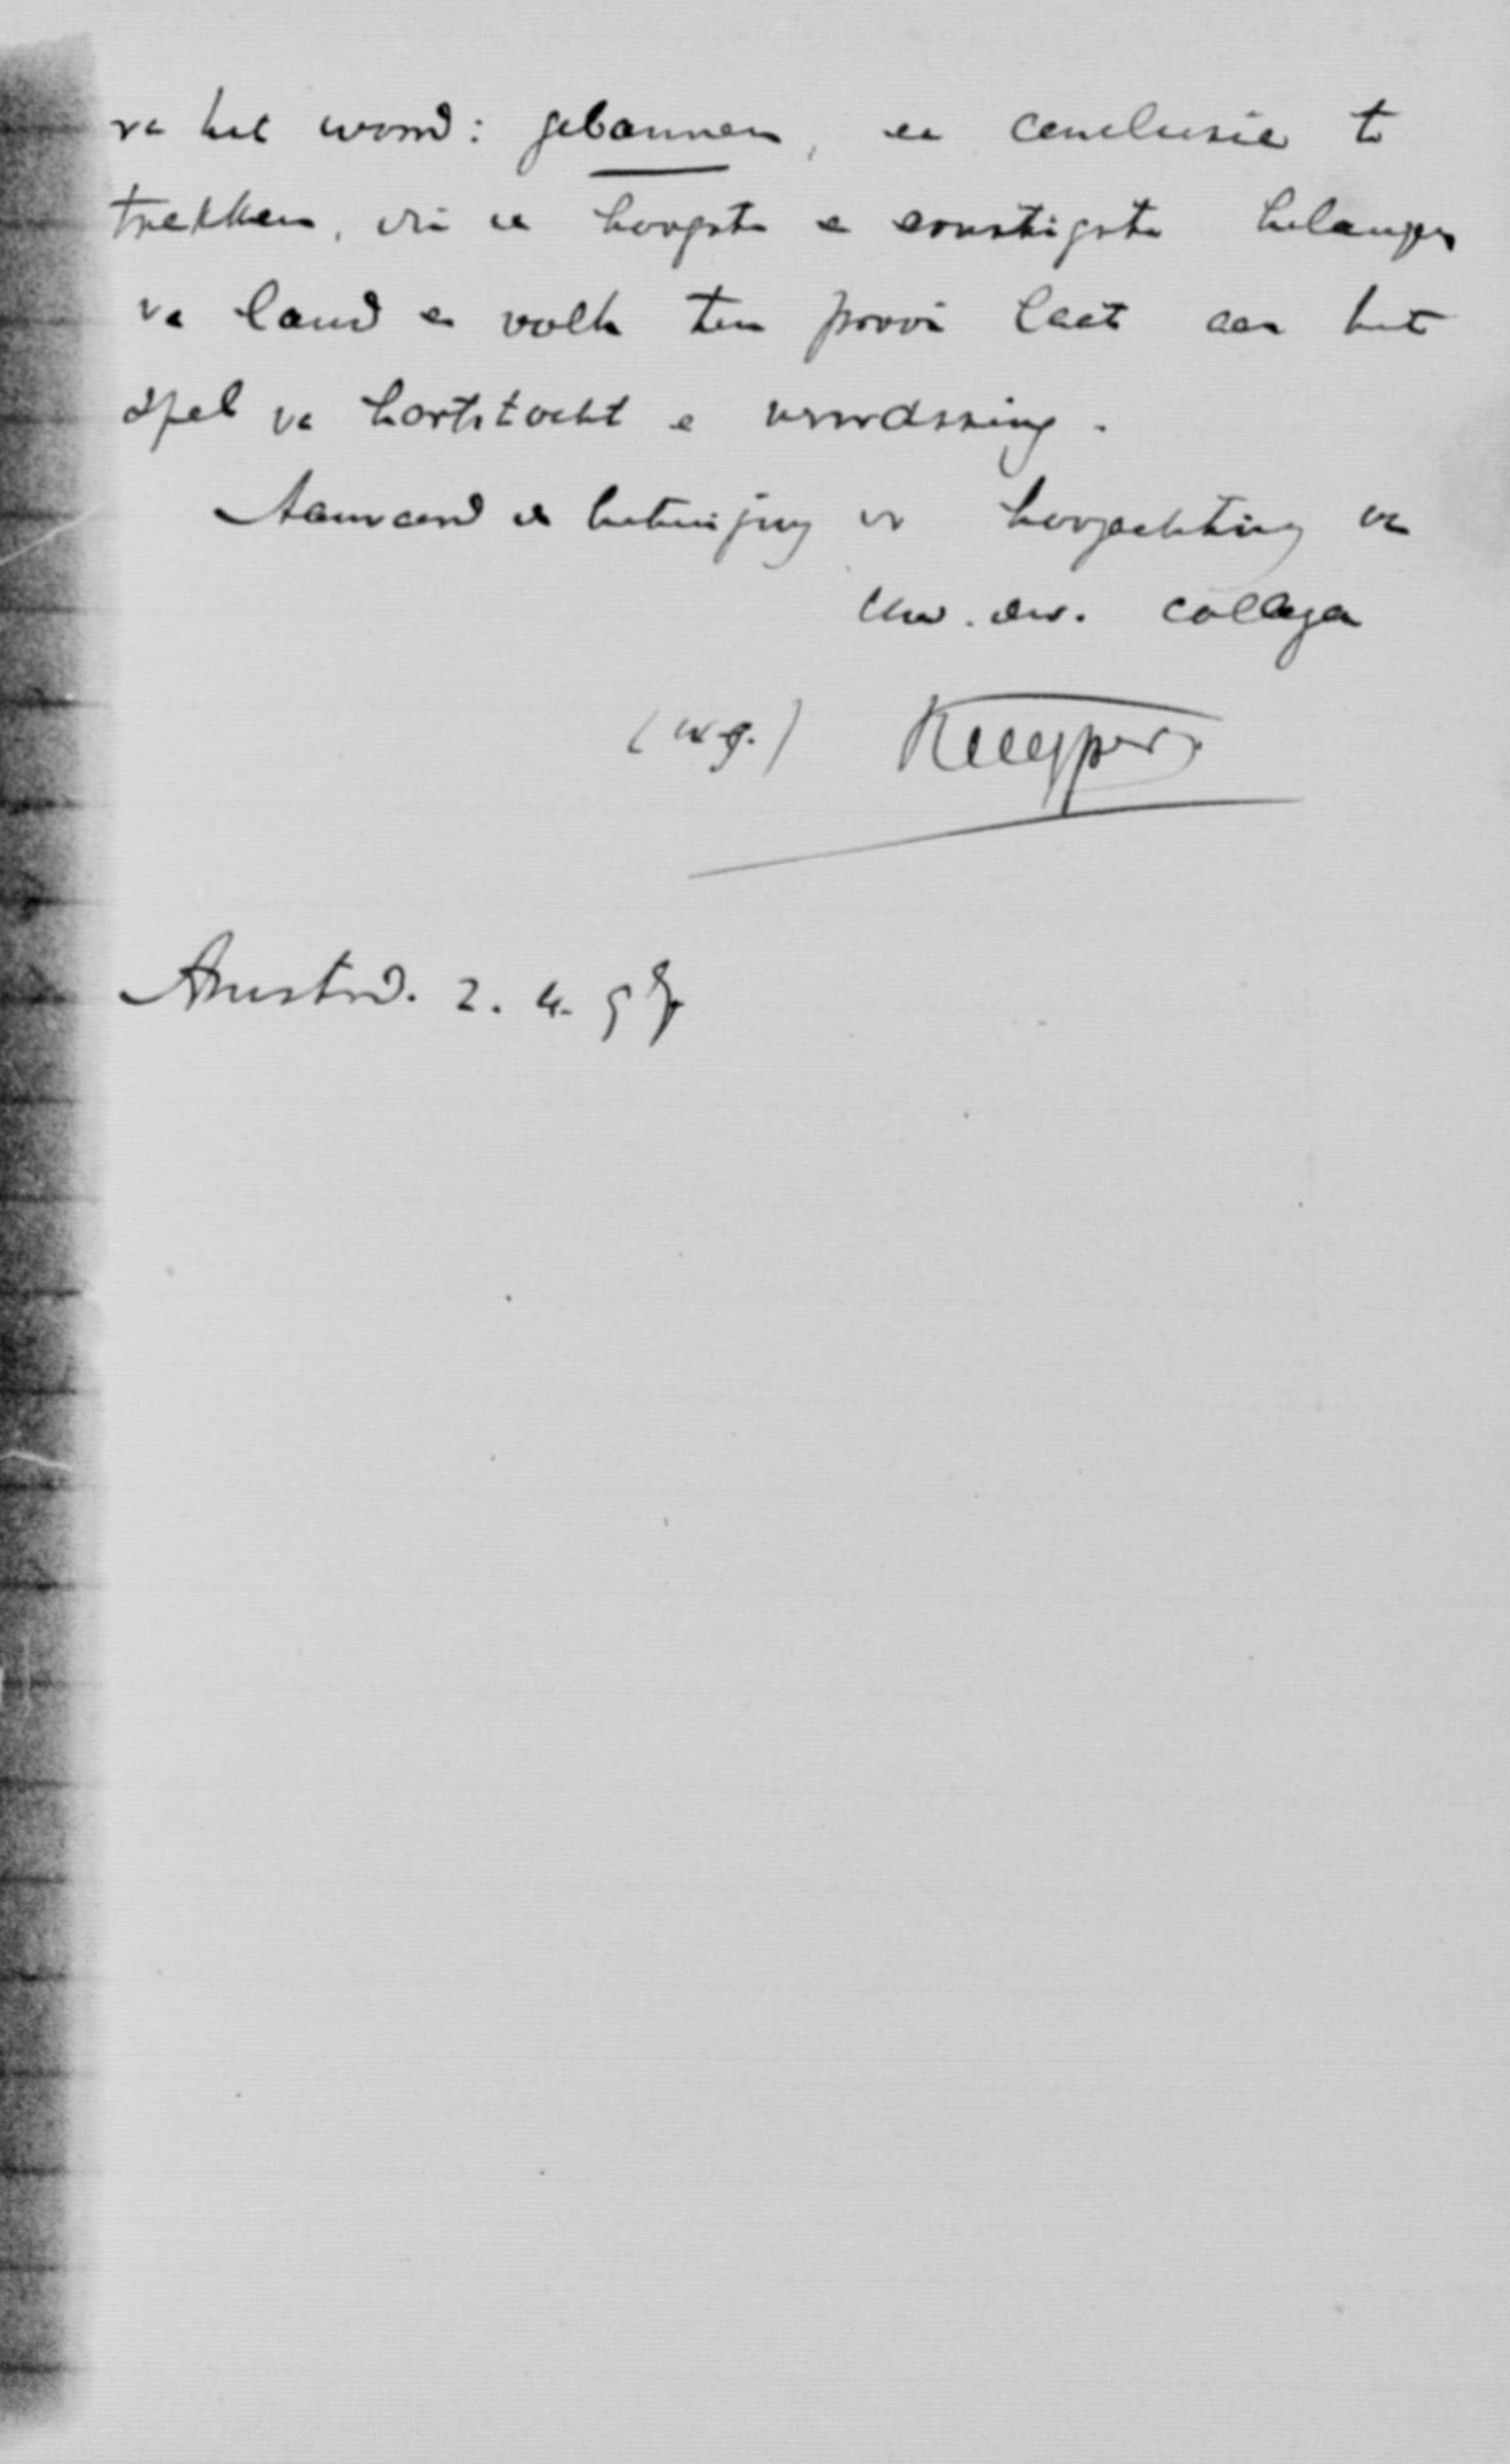 va het woord: gebannen, ee conclusie te
trekken, die de hoogste e ernstigste belangen
va land e volk ten prooi laat aan het
spel va hartstocht e verrassing.
Aanvaard de betuiging der hoogachting va
Uw. dw. collega
(w.g.) Kuyper
Amstrd. 2. 4. 97